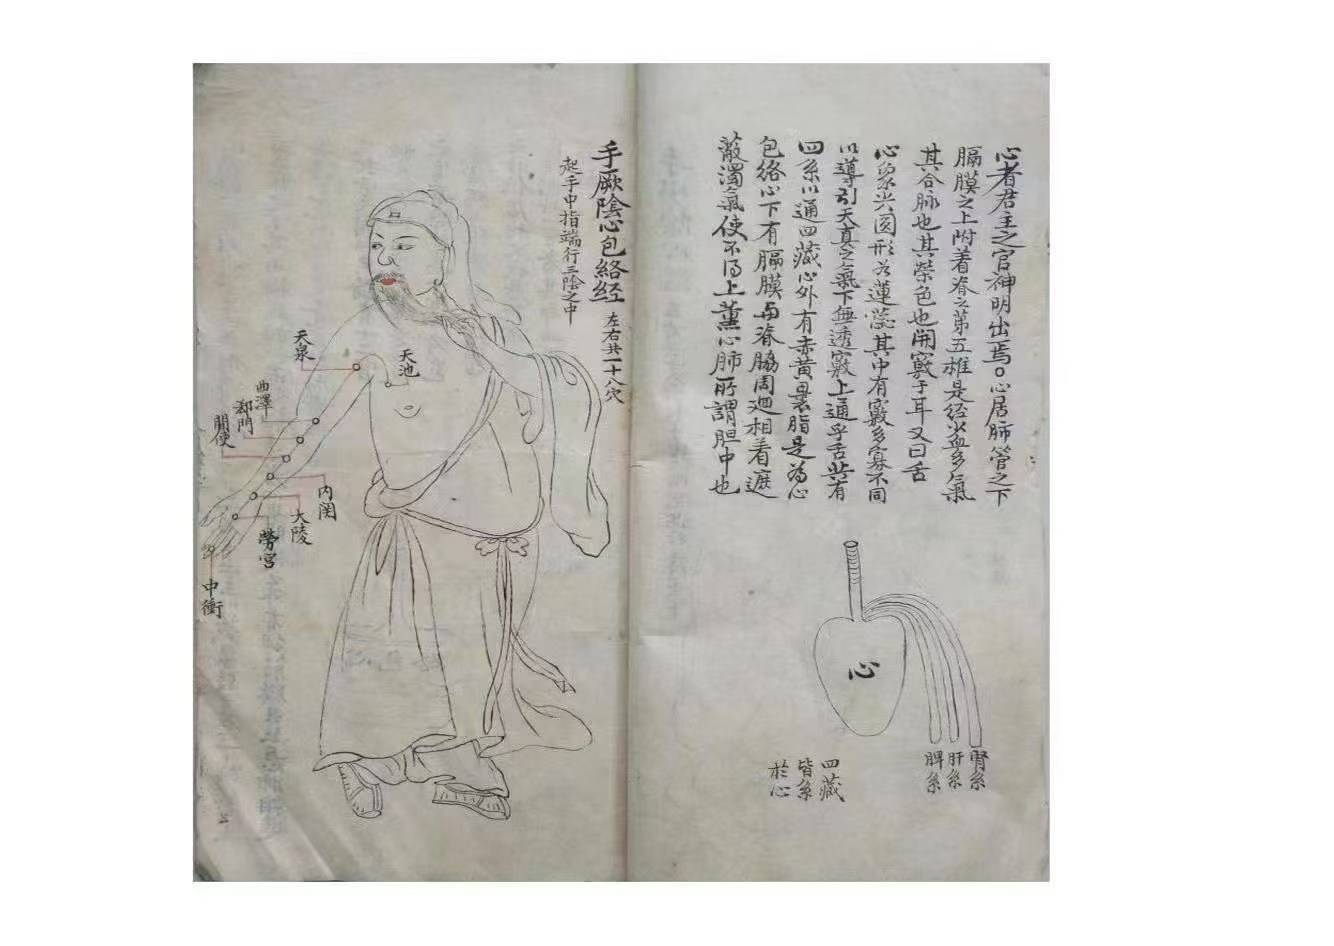 心者君主之官神明出焉。心居肺管之下
膈膜之上附着脊之第五椎是经少血多氣
其合脉也其榮色也開竅于耳又曰舌
心象尖圆形若蓮蕊其中有竅多寡不同
以導引天真之氣下無透竅上通乎舌共有
四系以通四藏心外有赤黄裹脂是為心
包络心下有膈膜与脊脇周廻相着遮
蔽濁氣使不得上薰心肺所謂胆中也
心
腎系
肝系
脾系
四藏
皆系
於心
手厥陰心包絡经
左右共一十八穴
起手中指端行三陰之中
天池
天泉
曲澤
郄門
間使
内関
大陵
勞宮
中衝